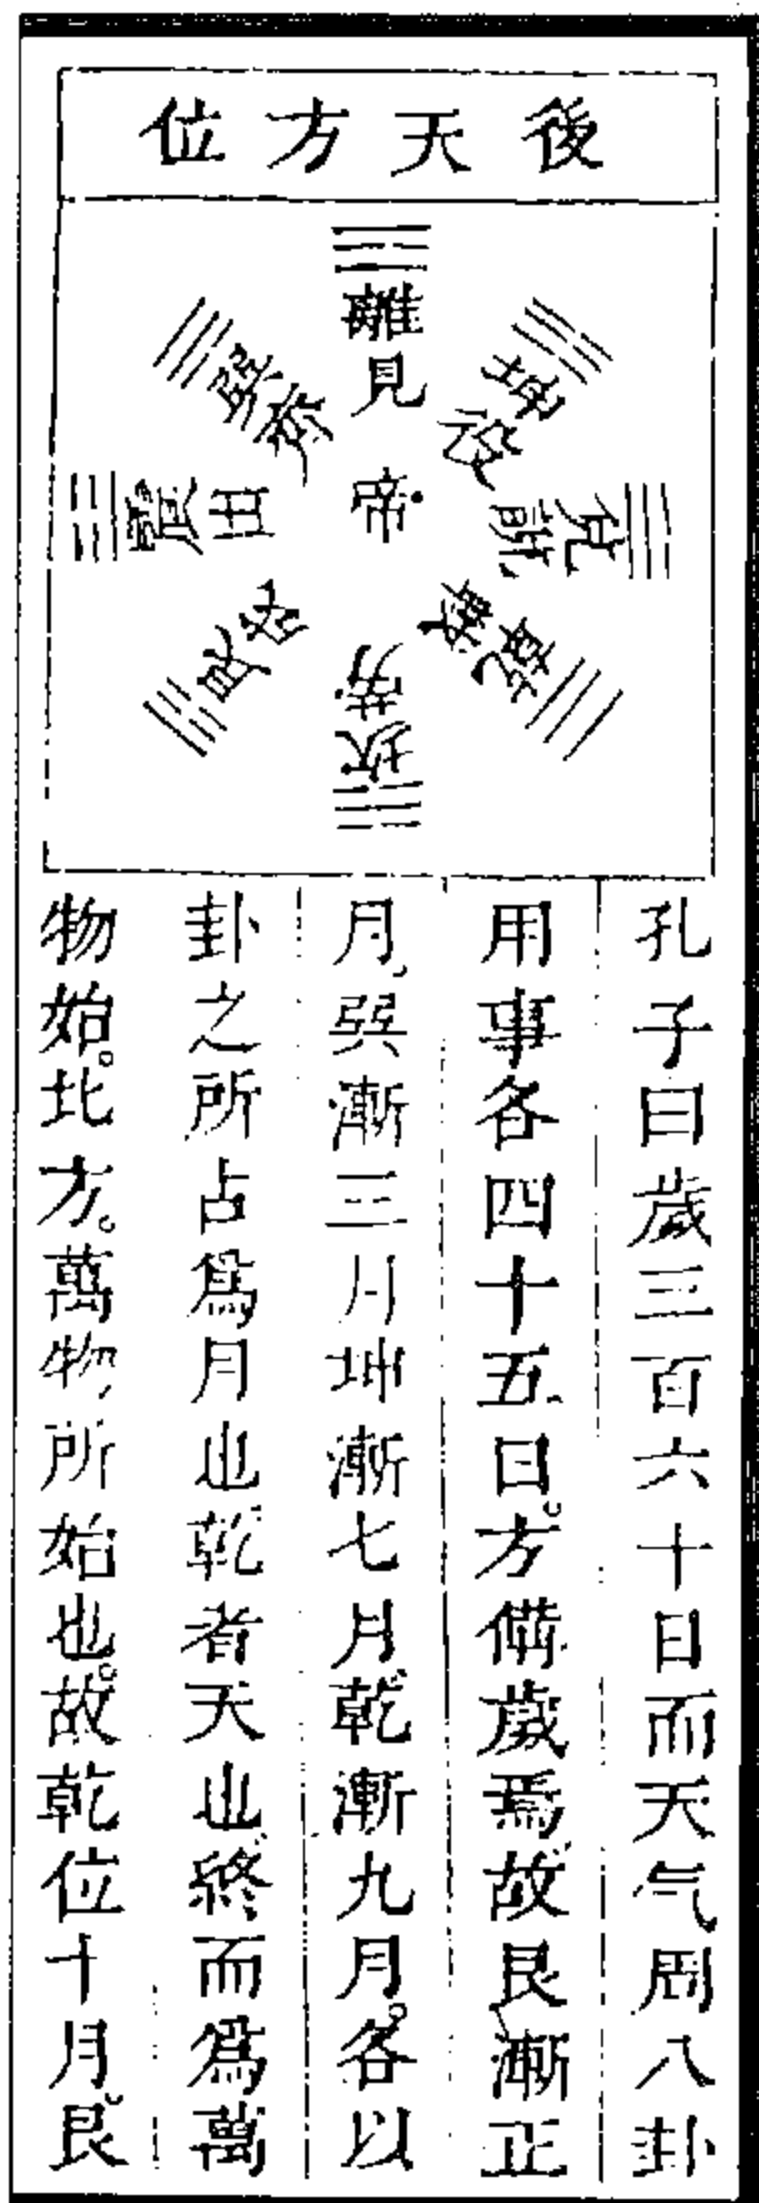 後天方位
離見
坤役
兌說
乾戰
坎勞
艮
震出
巽齊
帝
孔子曰歲三百六十日而天气周八卦
用事各四十五日。方備歲焉、故艮漸正
月、巽漸三月坤漸七月、乾漸九月。各以
卦之所占爲月也、乾者天也、終而爲萬
物始。北方。萬物、所始也。故乾位十月。艮